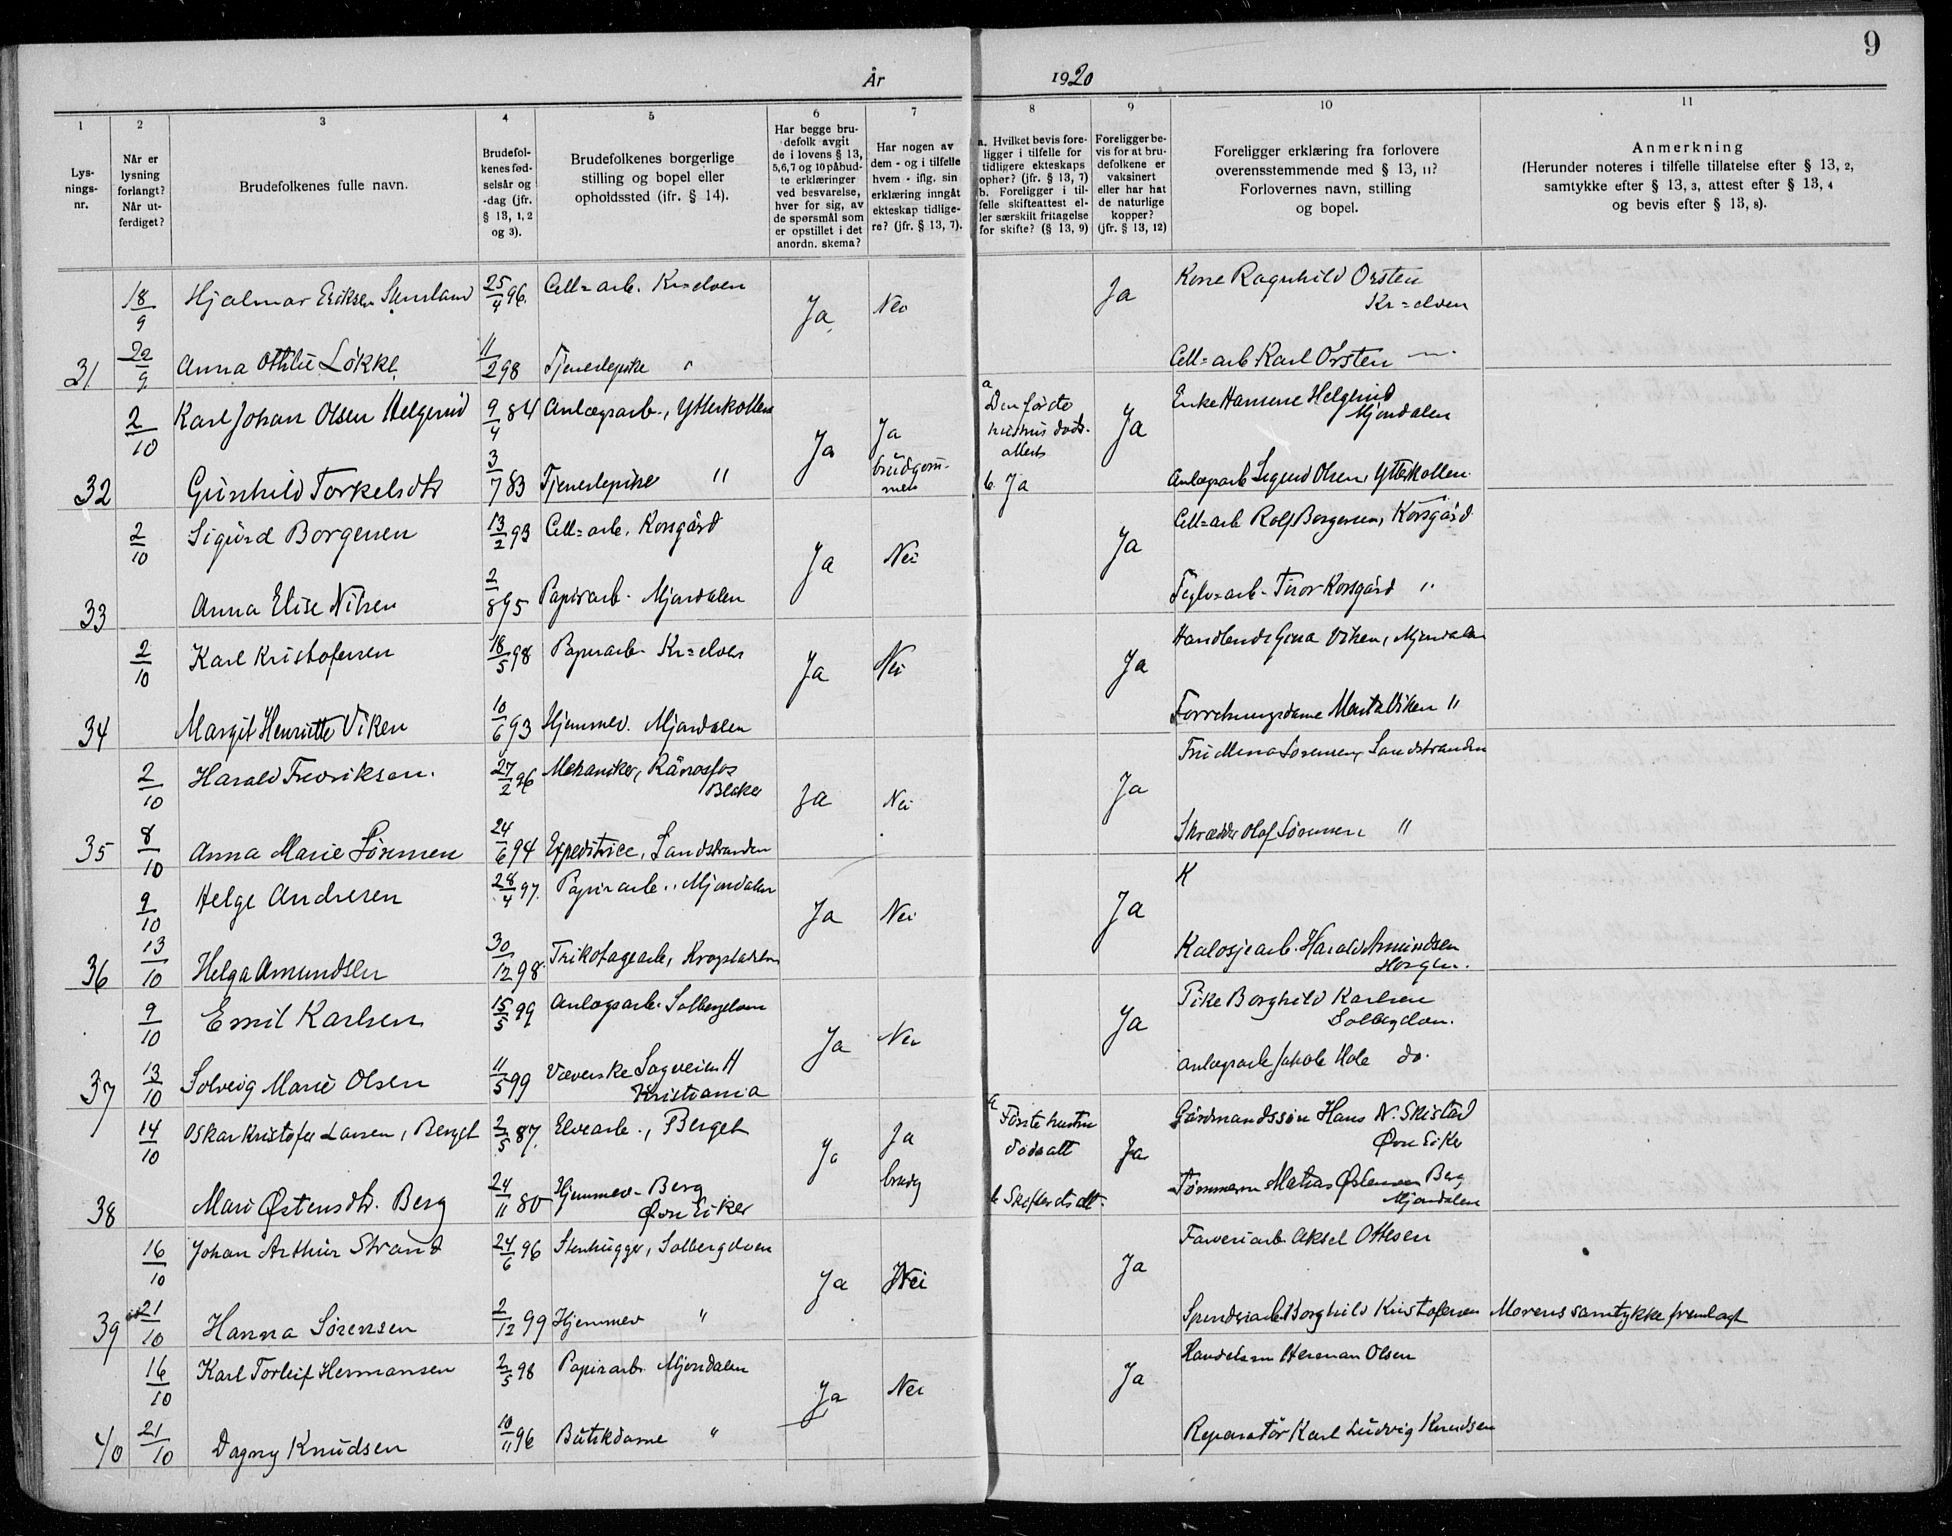 9
År 1920
1
2
3
4
5
6
7
8
9
10
11
Lys-
nings-
nr.
Når er
lysning
forlangt?
Når ut-
ferdiget?
Brudefolkenes fulle navn.
Brudefol-
kenes fød-
selsår og
-dag (jfr.
§ 13, 1, 2
og 3).
Brudefolkenes borgerlige
stilling og bopel eller
opholdssted (jfr. § 14).
Har begge bru-
defolk avgit
de i lovens § 13,
5,6,7 og 10 påbud-
te erklæringer
ved besvarelse,
hver for sig, av
de spørsmål som
er opstillet i det
anordn. skema?
Har nogen av
dem - og i tilfelle
hvem - iflg. sin
erklæring inngåt
ekteskap tidlige-
re? (jfr. § 13, 7).
a. Hvilket bevis fore-
ligger i tilfelle for
tidligere ekteskaps
ophør? (jfr. § 13, 7)
b. Foreligger i til-
felle skifteattest el-
ler særskilt fritagelse
for skifte? (§ 13, 9)
Foreligger be-
vis for at bru-
defolkene er
vaksinert
eller har hat
de naturlige
kopper?
(jfr. § 13, 12)
Foreligger erklæring fra forlovere
overensstemmende med § 13, 11?
Forlovernes navn, stilling
og bopel.
Anmerkning
(Herunder noteres i tilfelle tillatelse efter § 13, 2,
samtykke efter § 13, 3, attest efter § 13, 4
og bevis efter § 13, 8).
18/9 Hjalmar Eriksen 25/4 96. Cell=arb. Kr=elven Ja Nei Ja Kone Ragnhild Orsten
Kr=elven
31 22/9 Anna Othilie Løkke 11/2 98 Tjenestepike " Cell=arb Karl Orsten —"—
2/10 Karl Johan Olsen Helgerud 9/4 84 Anlægsarb., Ytterkollen Ja Ja
brudgom-
men a Den første
hustrus døds-
attest Ja Enke Hansine Helgerud
Mjøndalen
32 Gunhild Torkelsdtr 3/7 83 Tjenestepike " b. Ja Anlægsarb Sigurd Olsen, Ytterkollen.
2/10 Sigurd Borgersen 13/2 93 Cell=arb. Korsgård Ja Nei Ja Cell=arb Rolf Borgersen, Korsgård
33 Anna Elise Nilsen 2/8 95 Papirarb. Mjøndalen Teglv=arb. Tor Korsgård "
2/10 Karl Kristofersen 18/5 98 Papirarb. Kr=elven Ja Nei Ja Handlende Gina Viken, Mjøndalen
34 Margit Henriette Viken 10/6 93 Hjemmev. Mjøndalen Forretningsdame Marta Viken "
2/10 Harald Fredriksen. 27/2 96 Mekaniker, Rånosfos
Blaker Ja Nei Ja Fru Mina Sørensen, Sandstranden
35 8/10 Anna Marie Sørensen 24/6 94 Expeditrice, Sandstranden Skrædder Olaf Sørensen "
9/10 Helge Andresen 28/4 97. Papirarb., Mjøndalen Ja Nei Ja K
36 13/10 Helga Amundsen 30/12 98. Trikotagearb, Krogstadelven Kalosjearb. Harald Amundsen
Horgen.
9/10 Emil Karlsen 15/5 99 Anlægsarb. Solbergelven Ja Nei Ja Pike Borghild Karlsen
Solbergelven.
37 13/10 Solveig Marie Olsen 11/5 99 Væverske Sagveien
Kristiania Anlægsarb Jakob Hole do.
14/10 Oskar Kristofer Larsen, Berget 2/5 87. Elvearb., Berget Ja Ja
brudg a Første hustru
dødsatt Ja Gårdmandssøn Hans N. Skistad
Øvre Eiker
38 Mari Østensdtr. Berg 24/11 80 Hjemmev. Berg
Øvre Eiker b Skifteretsatt. Tømmerm Matias Østensen Berg
Mjøndalen
16/10 Johan Arthur Strand 24/6 96 Stenhugger, Solbergelven Ja Nei Ja Farveriarb Aksel Ottesen
39 21/10 Hanna Sørensen 2/12 99 Hjemmev " Spinderiarb Borghild Kristofersen Morens samtykke fremlagt
16/10 Karl Torleif Hermansen 2/5 98 Papirarb Mjøndalen Ja Nei Ja Handelsm Herman Olsen
40 21/10 Dagny Knudsen 10/11 96 Butikdame " Reparatør Karl Ludvig Knudsen